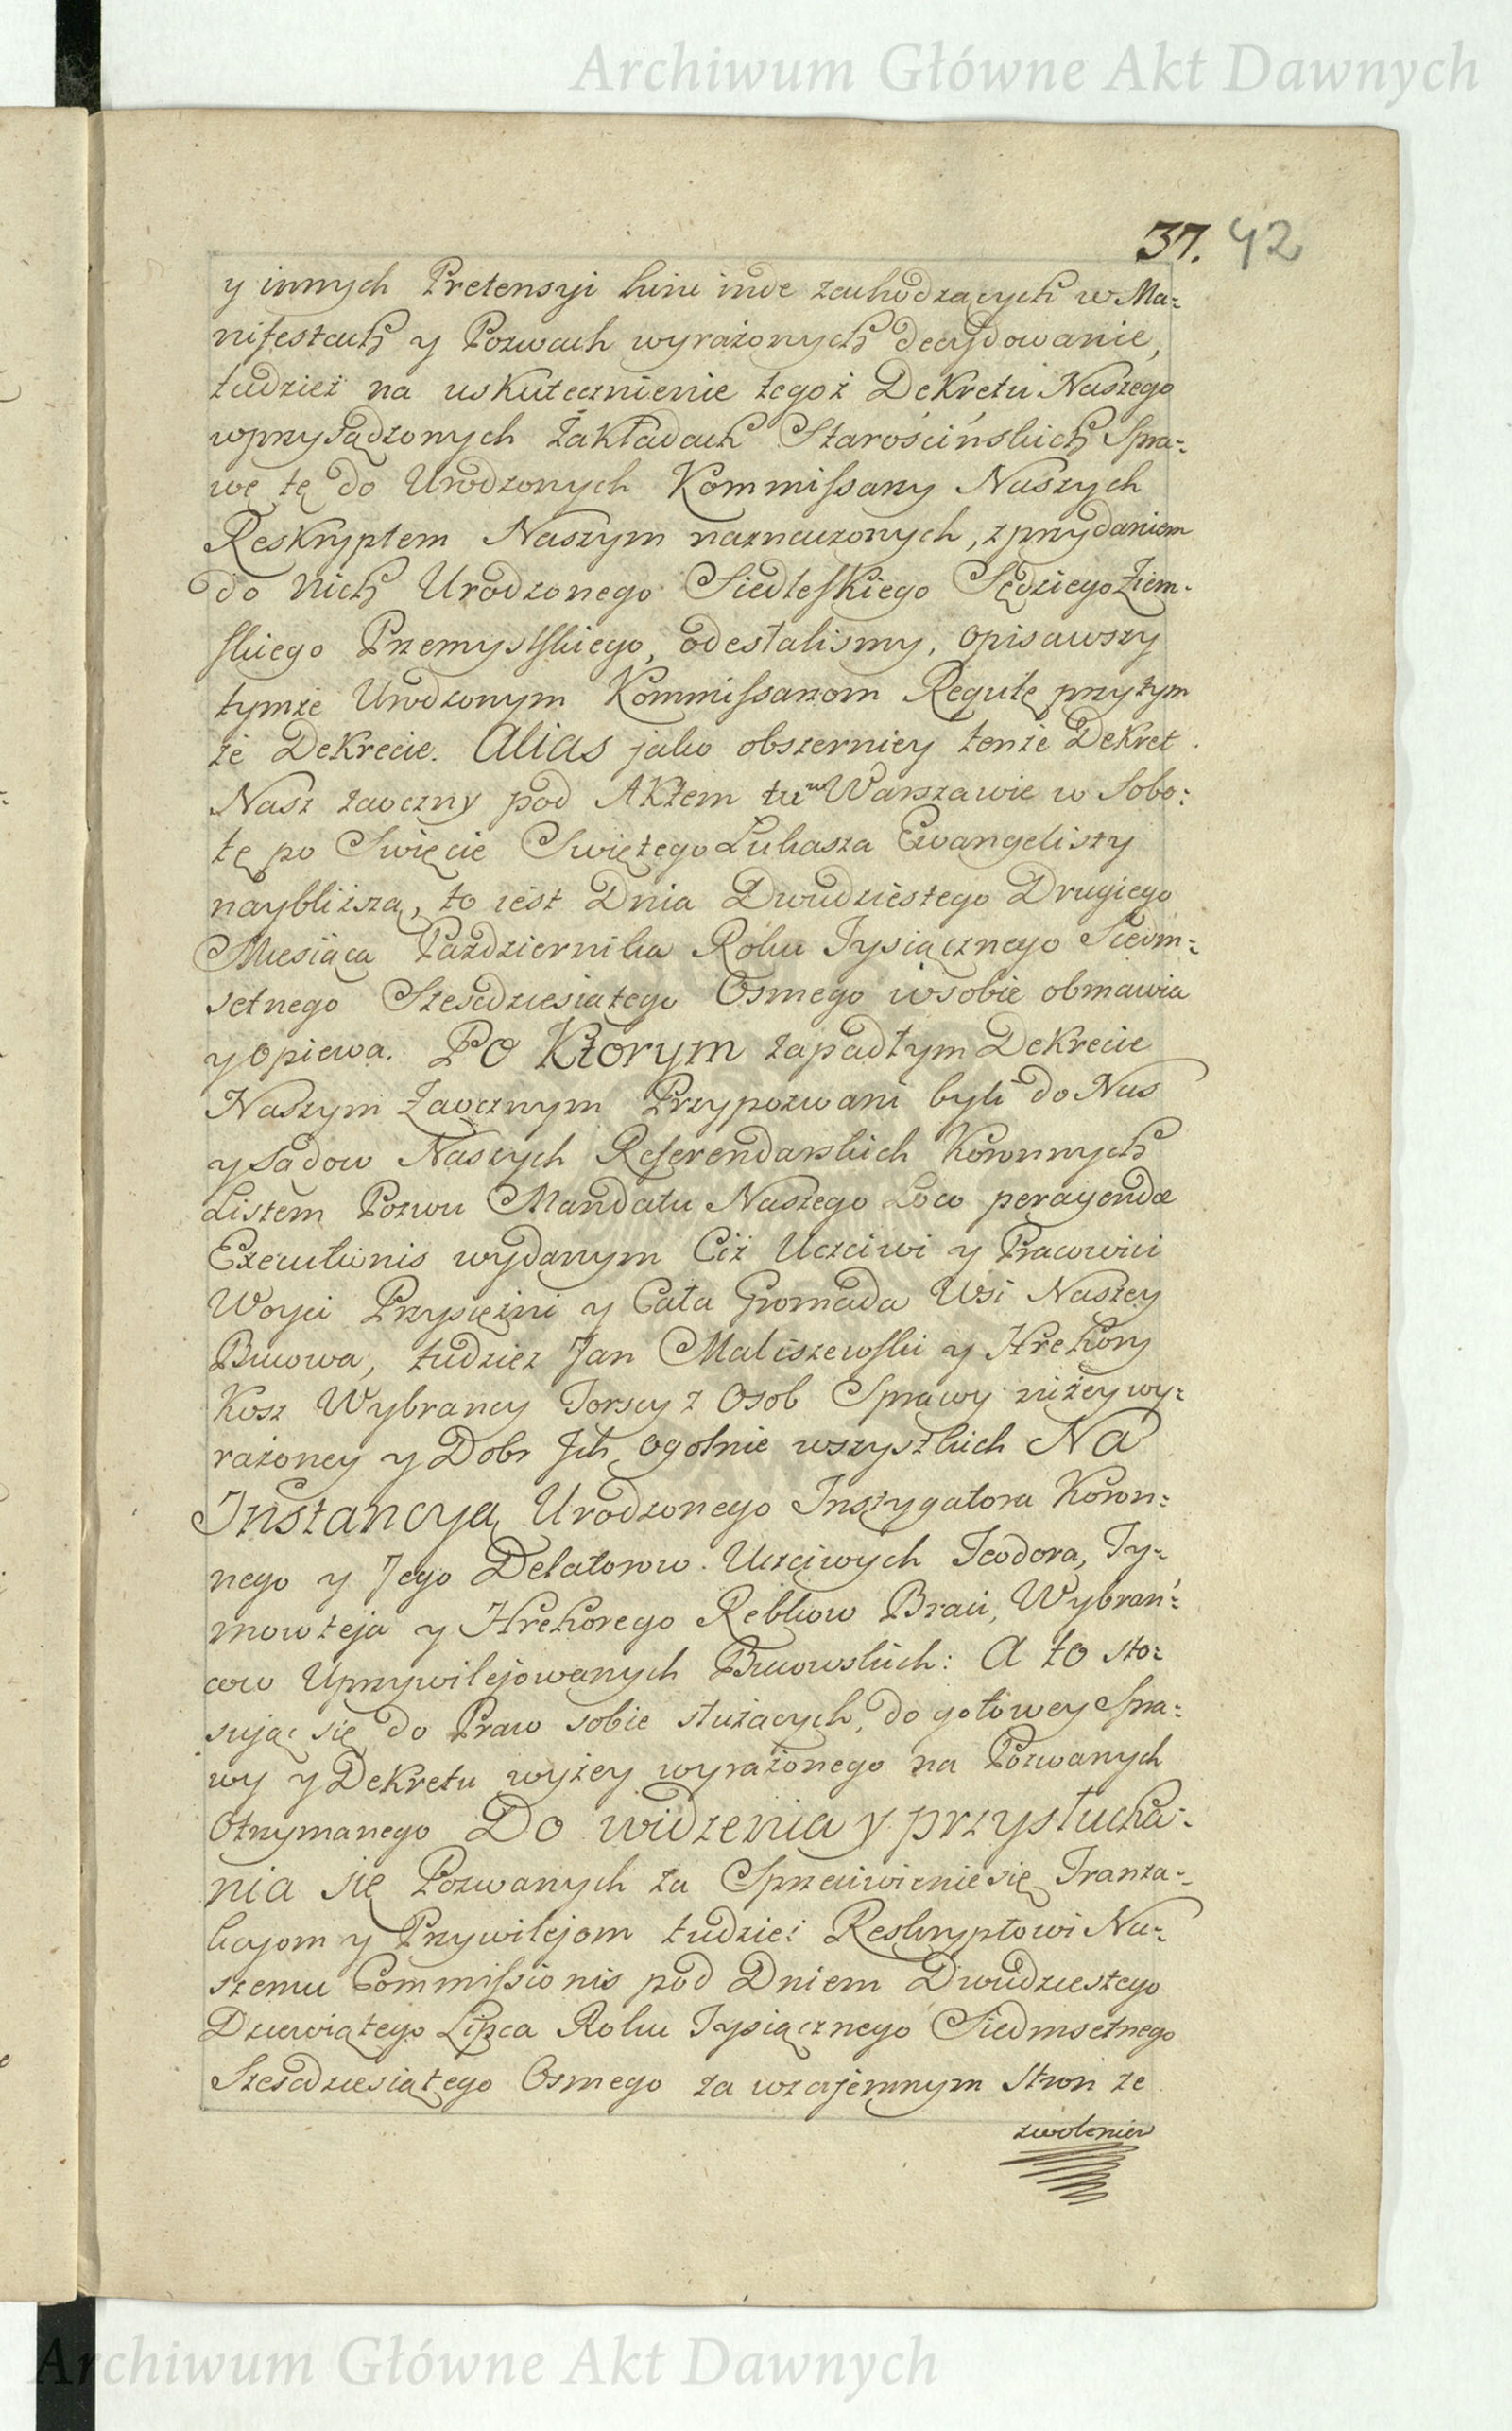 Archiwum Główne Akt Dawnych
37. 42
y innych Pretensyi hinc inde zachodzących w Ma-
nifestach y Pozwach wyrażonych decydowanie,
tudzież na uskutecznienie tegoż Dekretu Naszego
w przysądzonych Zakładach Starościńskich Spra-
wę tę do Urodzonych Kommissarzy Naszych
Reskryptem Naszym naznaczonych, z przydaniem
do nich Urodzonego Siedleskiego Sędziego Ziem-
skiego Przemyslskiego, odesłalismy, opisawszy
tymże Urodzonym Kommissarzom Regułę przy tym
że Dekrecie. Alias jako obszerniey tenże Dekret
Nasz zaoczny pod Aktem tu w Warszawie w Sobo-
tę po Swięcie Swiętego Łukasza Ewangelisty
naybliższą, to iest Dnia Dwudziestego Drugiego
Miesiąca Pazdziernika Roku Tysiącznego Siedm-
setnego Szescdziesiątego Osmego w sobie obmawia
y opiewa. Po Którym zapadłym Dekrecie
Naszym Zaocznym Przypozwani byli do Nas
y Sądow Naszych Referendarskich Koronnych
Listem Pozwu Mandatu Naszego Loco peragendæ
Executionis wydanym Ciż Uczciwi y Pracowici
Woyci Przysiężni y Cała Gromada Wsi Naszey
Bucowa, tudziez Jan Maliszewski y Hrehory
Kosz Wybrancy Torscy z Osob Sprawy niżey wy-
rażoney y Dobr Ich ogolnie wszystkich Na
Instancyą Urodzonego Instygatora Koron-
nego y Jego Delatorow. Uczciwych Teodora, Ty-
mowteja y Hrehorego Rebkow Braci, Wybrań-
cow Uprzywilejowanych Bucowskich: A to sto-
sując się do Praw sobie służących, do gotowey Spra-
wy y Dekretu wyżey wyrażonego na Pozwanych
Otrzymanego Do widzenia y przysłucha-
nia się Pozwanych za Sprzeciwienie się Tranza-
kcyom y Przywilejom tudzież Reskryptowi Na-
szemu Commissionis pod Dniem Dwudziestego
Dziewiątego Lipca Roku Tysiącznego Siedmsetnego
Szescdziesiątego Osmego za wzajemnym Stron ze
zwolenien
Archiwum Główne Akt Dawnych